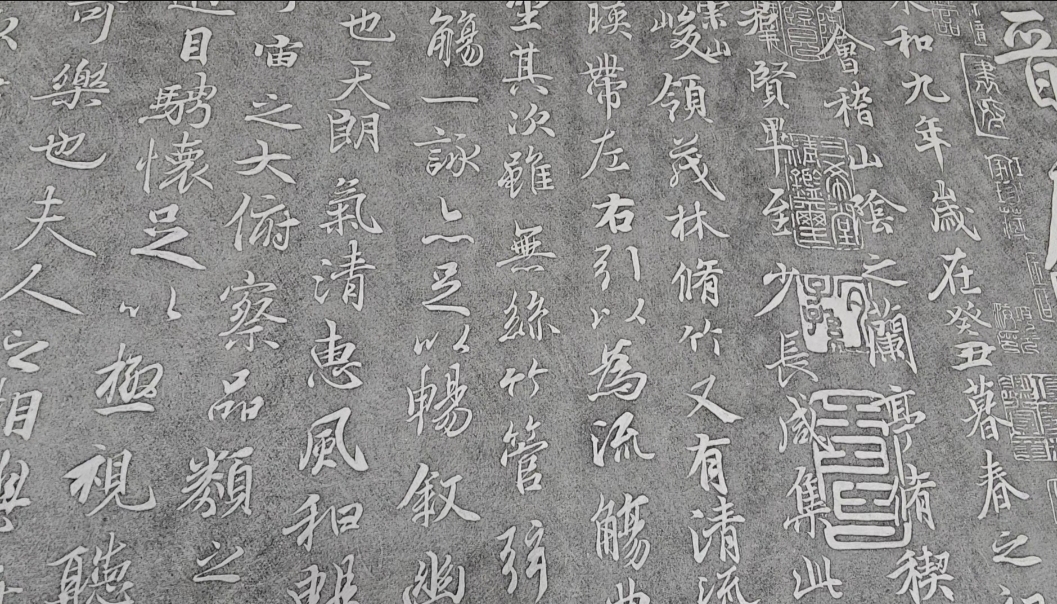 晉
永和九年歲在癸丑暮春之初
會稽山陰之蘭亭脩禊
羣賢畢至少長咸集此
崇山峻領茂林脩竹又有清流
暎帶左右引以為流觴曲
坐其次雖無絲竹管弦
觴一詠亦足以暢敘幽
也天朗氣清惠風和暢
宙之大俯察品類之
遊目騁懷足以極視聽
可樂也夫人之相與